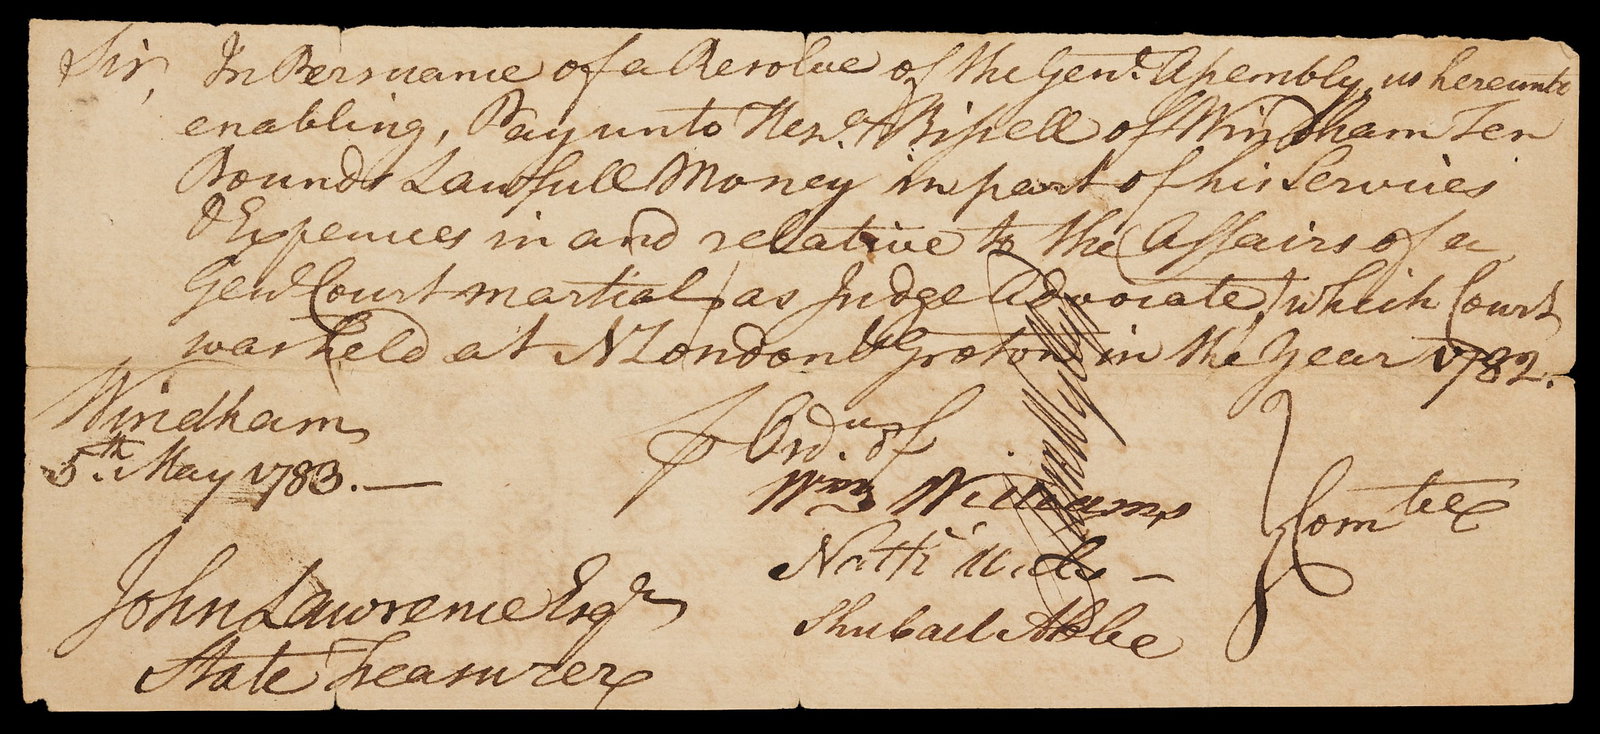 Sir, In Persuance of a Resolve of the Genl. Assembly, us hereunto
enabling, Pay unto Hezh. Bissell of Windham Ten
Pounds Lawfull Money in part of his Services
& Expences in and relative to the Affairs of a
Genl Court martial (as Judge Advocate) which Court
was held at N London & Groton in the Year 1782.—
Windham
5th. May 1783.—
Ordr of
Wm Williams
Nathl Wales —
Shubael Abbe
Comtee
John Lawrence Esqr
State Treasurer